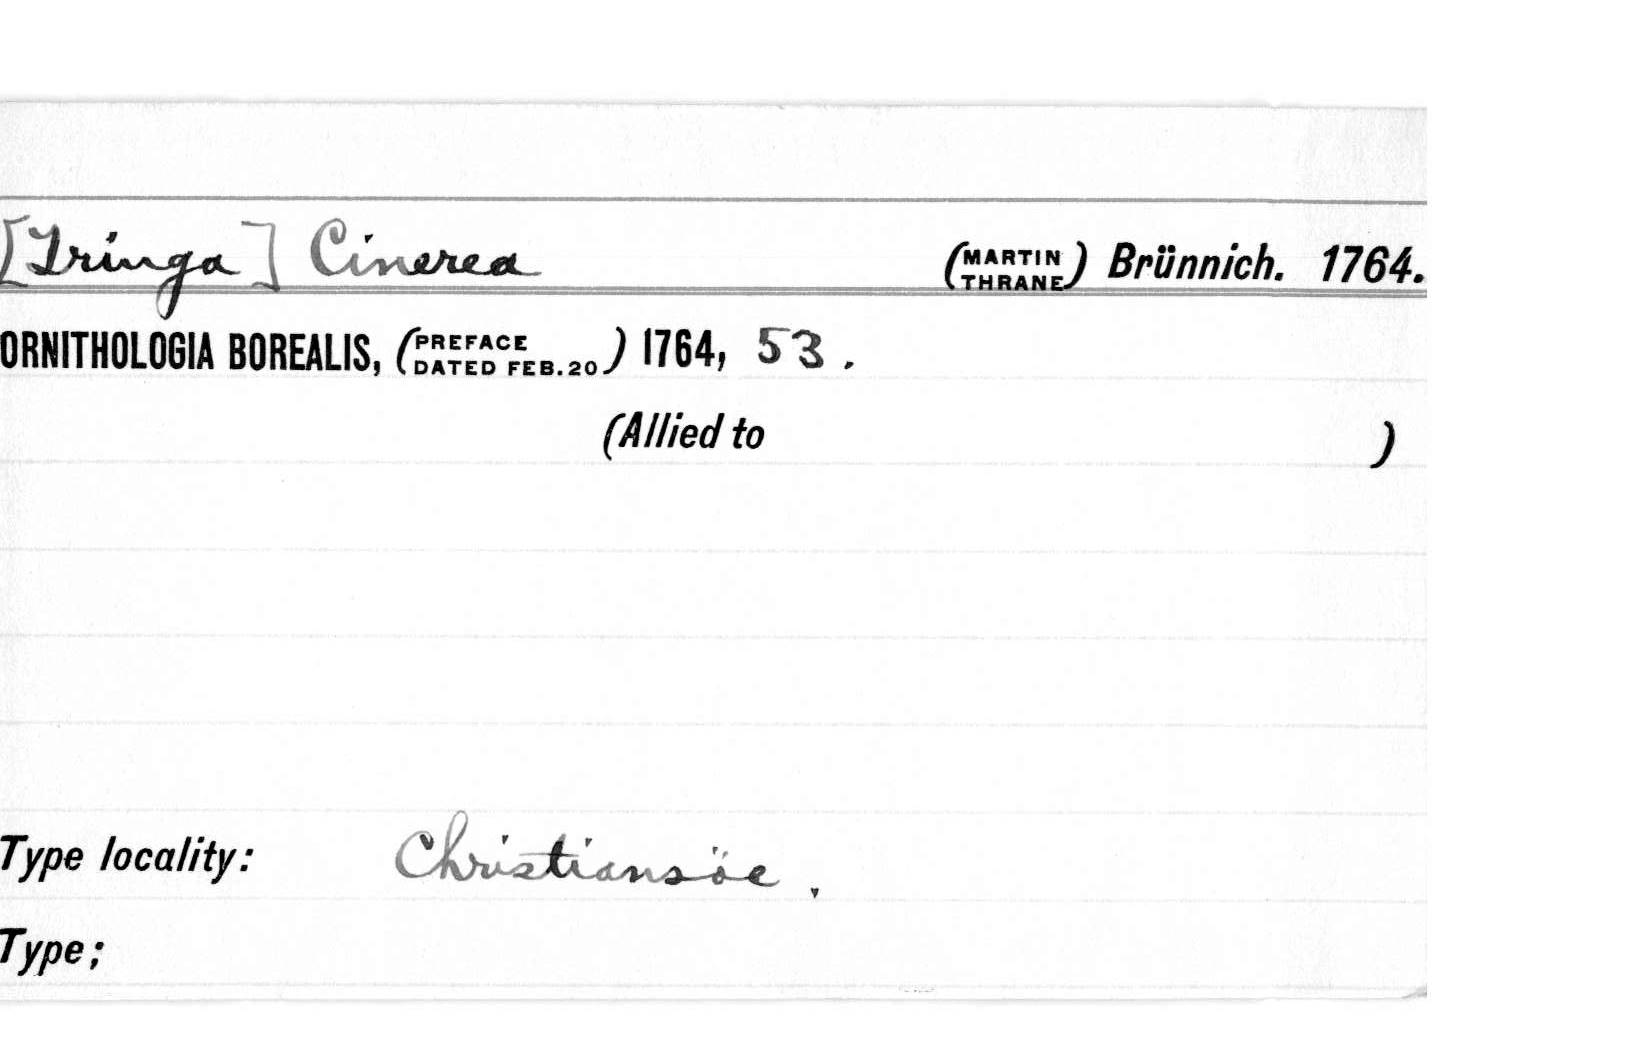 [Tringa] Cinerea (MARTIN THRANE) Brünnich. 1764.
ORNITHOLOGIA BOREALIS, (PREFACE DATED FEB. 20) 1764, 53.
(Allied to )
Type locality: Christiansöe.
Type;